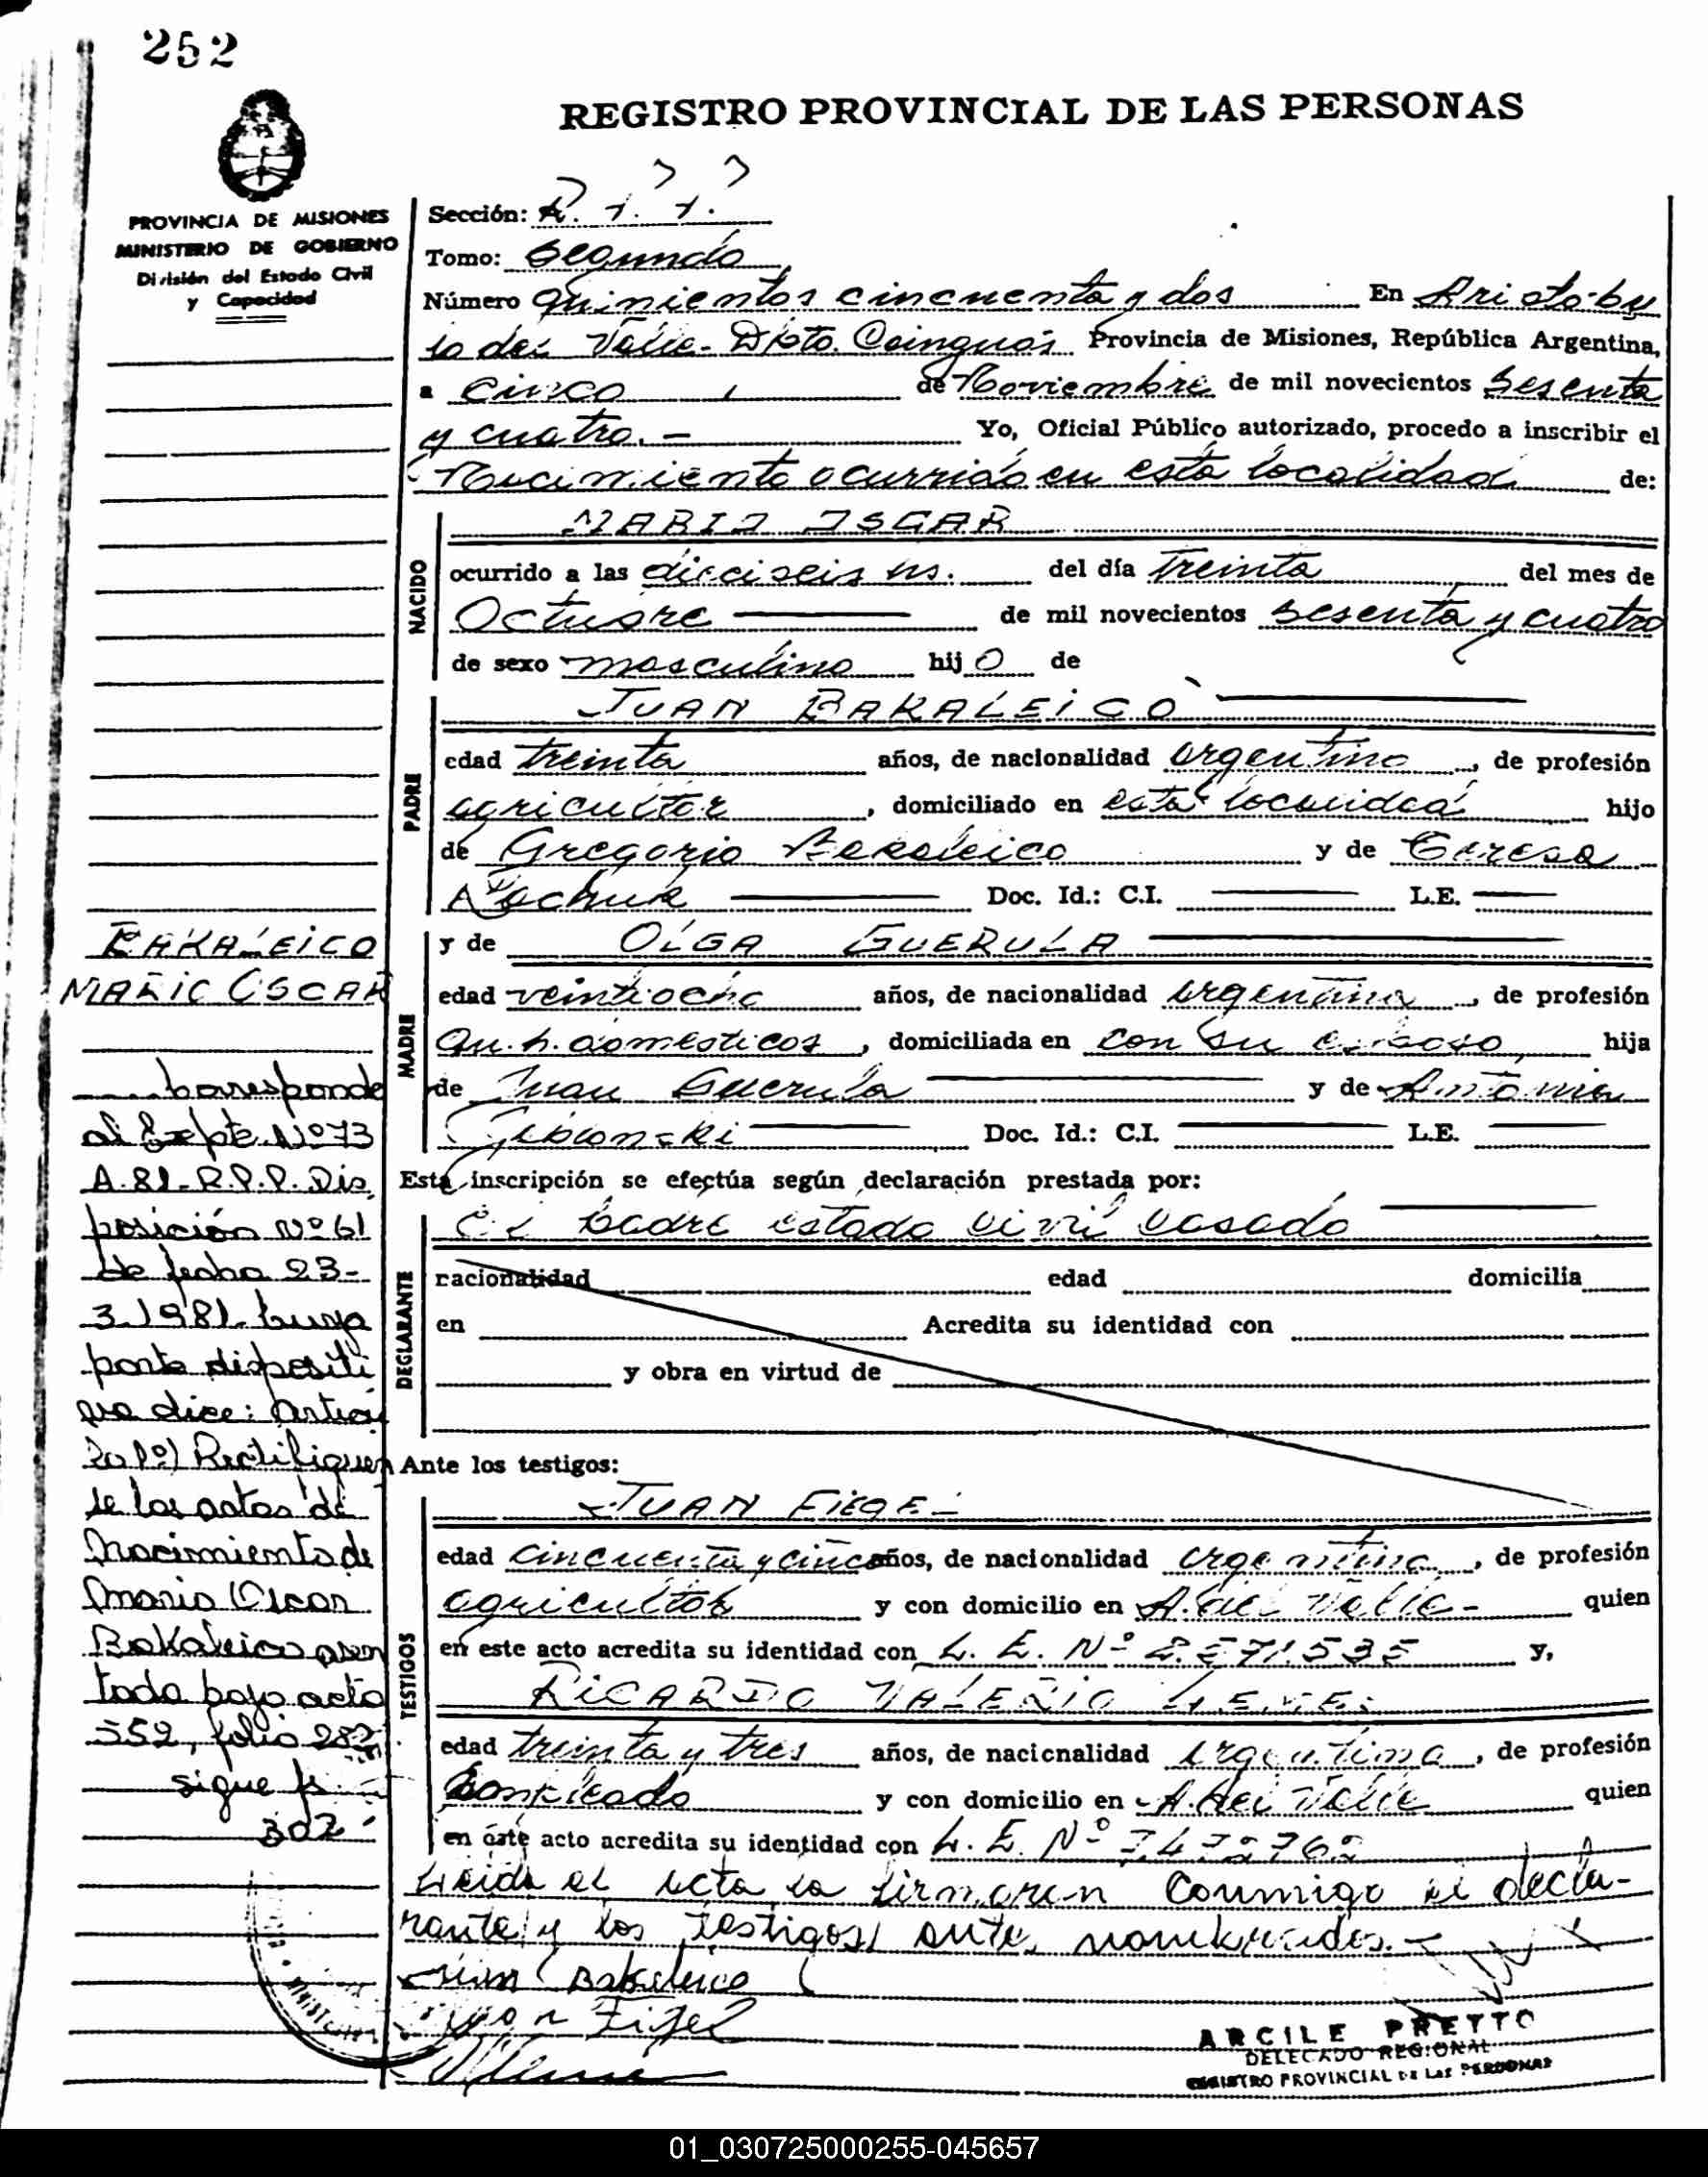 252
REGISTRO PROVINCIAL DE LAS PERSONAS
PROVINCIA DE MISIONES
MINISTERIO DE GOBIERNO
División del Estado Civil
y Capacidad
Sección:
Tomo: Segundo
Número quinientos cincuenta y dos En Aristóbu
lo del Valle - Dpto. Cainguás Provincia de Misiones, República Argentina,
a cinco de Noviembre de mil novecientos sesenta
y cuatro. — Yo, Oficial Público autorizado, procedo a inscribir el
Nacimiento ocurrido en esta localidad de:
NACIDO
MARIO OSCAR
ocurrido a las dieciseis hs. del día treinta del mes de
Octubre — de mil novecientos sesenta y cuatro
de sexo masculino hijo de
PADRE
JUAN BAKALEICO —
edad treinta años, de nacionalidad argentino, de profesión
agricultor, domiciliado en esta localidad hijo
de Gregorio Bakaleico y de Teresa
— Doc. Id.: C.I. — L.E. —
MADRE
y de OLGA GUERULA —
edad veintiocho años, de nacionalidad argentina, de profesión
qu. h. domésticos, domiciliada en con su esposo, hija
de Juan Guerula — y de Antonia
— Doc. Id.: C.I. — L.E. —
Esta inscripción se efectúa según declaración prestada por:
DECLARANTE
El padre estado civil casado —
nacionalidad edad domicilia
en Acredita su identidad con
y obra en virtud de
Ante los testigos:
TESTIGOS
JUAN
edad cincuenta y cinco años, de nacionalidad argentina, de profesión
agricultor y con domicilio en A. del Valle - quien
en este acto acredita su identidad con L. E. Nº y,
RICARDO VALERIO
edad treinta y tres años, de nacionalidad argentina, de profesión
empleado y con domicilio en A. del Valle quien
en este acto acredita su identidad con L. E. Nº
Leida el acta la firmaron conmigo el decla-
rante y los testigos ante nombrados. -
Juan Bakaleico
Juan
ARCILE PRETTO
DELEGADO REGIONAL
REGISTRO PROVINCIAL DE LAS PERSONAS
BAKALEICO
MARIO OSCAR
Corresponde
al Expte. Nº 73
A. 81 - R.P.P. Dis
posición Nº 61
de fecha 23-
3.1981. cuya
parte dispositi
va dice: Articu
lo 1º) Rectifiquen
se las actas de
Nacimiento de
Mario Oscar
Bakaleico asen
tada bajo acta
552, folio 252
sigue fs
302
01_030725000255-045657